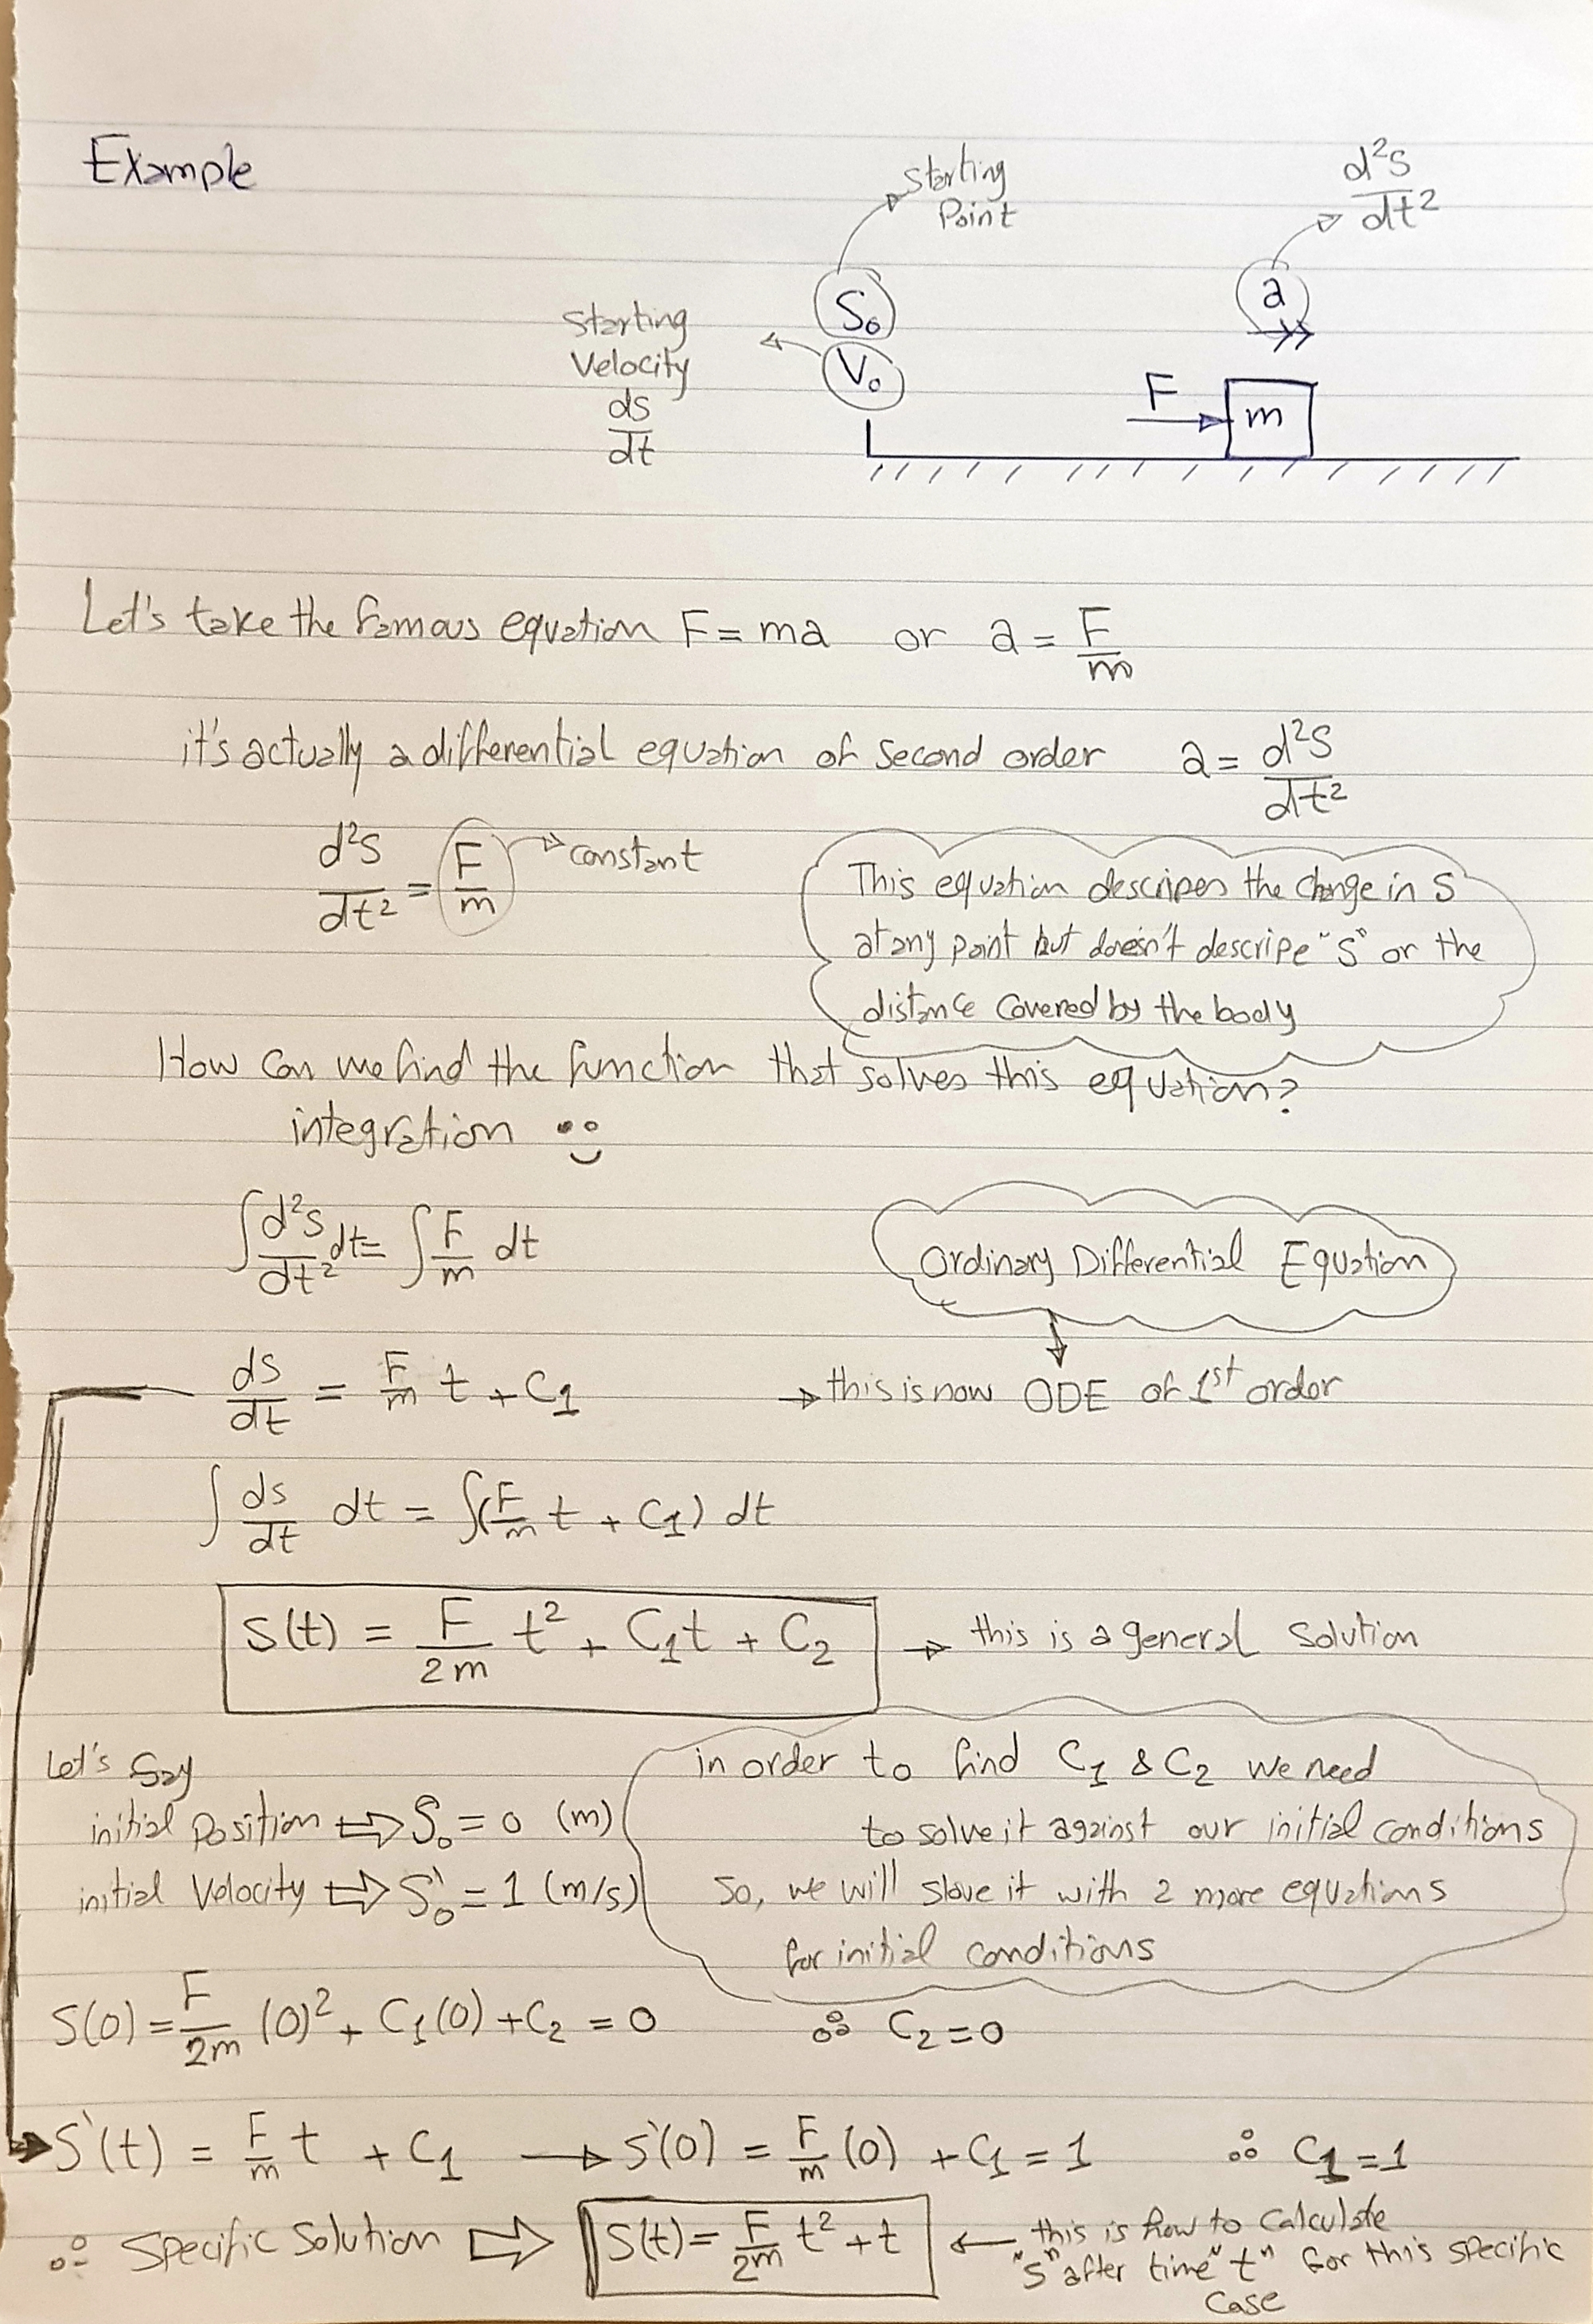 Example
Starting
Point
d²s
dt²
S₀
a
Starting
Velocity
ds
dt
V₀
F
m
Let's take the famous equation F = ma or a = F/m
it's actually a differential equation of second order a = d²s/dt²
d²s/dt² = F/m constant
This equation descripes the change in S
at any point but doesn't descripe "S" or the
distance covered by the body
How can we find the function that solves this equation?
integration
∫ d²s/dt² dt = ∫ F/m dt
Ordinary Differential Equation
ds/dt = F/m t + C₁ → this is now ODE of 1st order
∫ ds/dt dt = ∫(F/m t + C₁) dt
S(t) = F/2m t² + C₁t + C₂ → this is a general solution
Let's say
initial Position ⇨ S₀ = 0 (m)
initial Velocity ⇨ S₀` = 1 (m/s)
in order to find C₁ & C₂ we need
to solve it against our initial conditions
So, we will slove it with 2 more equations
for initial conditions
S(0) = F/2m (0)² + C₁(0) + C₂ = 0 ∴ C₂ = 0
S`(t) = F/m t + C₁ → S`(0) = F/m (0) + C₁ = 1 ∴ C₁ = 1
∴ Specific Solution ⇨ S(t) = F/2m t² + t ← this is how to calculate
"s" after time "t" for this specific
case